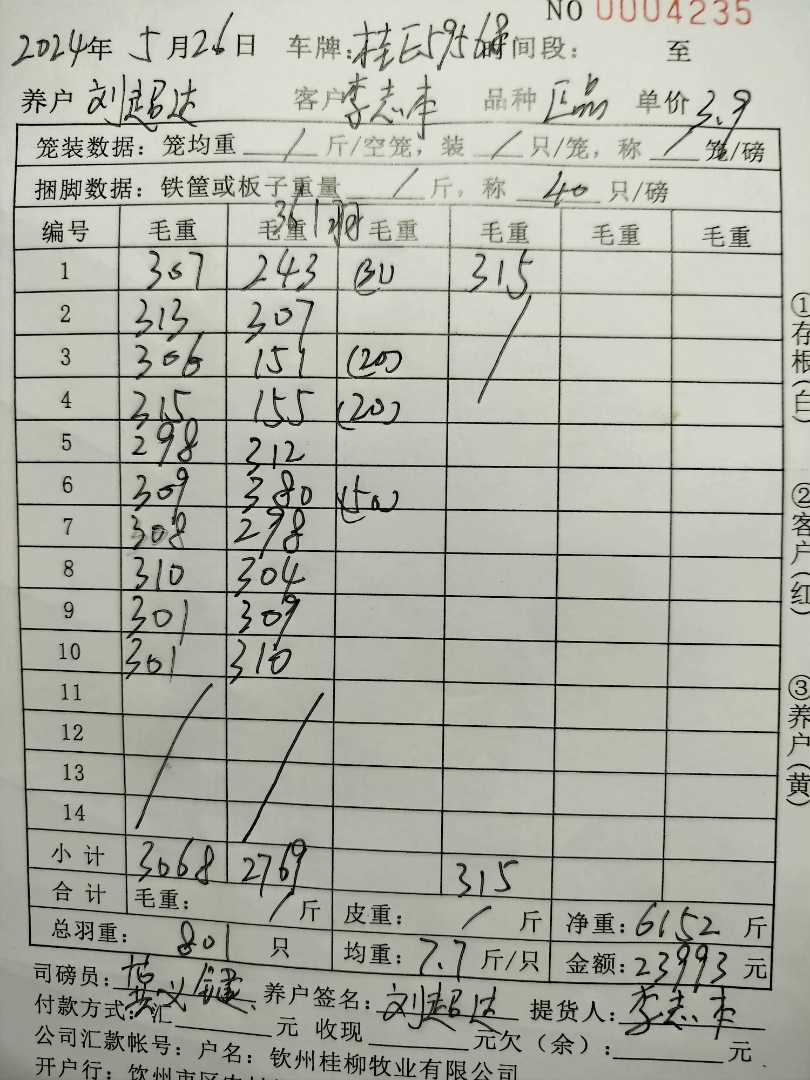 NO 0004235
2024年 5月26日 车牌:桂E59568 时间段: 至
养户 刘超达 客户 李志丰 品种 正品 单价 3.9
笼装数据: 笼均重 / 斤/空笼, 装 / 只/笼, 称 / 笼/磅
捆脚数据: 铁筐或板子重量 / 斤, 称 40 只/磅
361羽
编号 毛重 毛重 毛重 毛重 毛重 毛重
1 307 243 (31) 315
2 313 307 /
3 306 151 (20)
4 315 155 (20)
5 298 312
6 309 380 (50)
7 308 298
8 310 304
9 301 309
10 301 310
11 / /
12
13
14
小计 3068 2769 315
合计 毛重: / 斤 皮重: / 斤 净重: 6152 斤
总羽重: 801 只 均重: 7.7 斤/只 金额: 23993 元
司磅员: 养户签名: 刘超达 提货人: 李志丰
付款方式: 汇 元 收现 元欠(余): 元
公司汇款帐号: 户名: 钦州桂柳牧业有限公司
开户行: 钦州市区农村
①存根(白) ②客户(红) ③养户(黄)